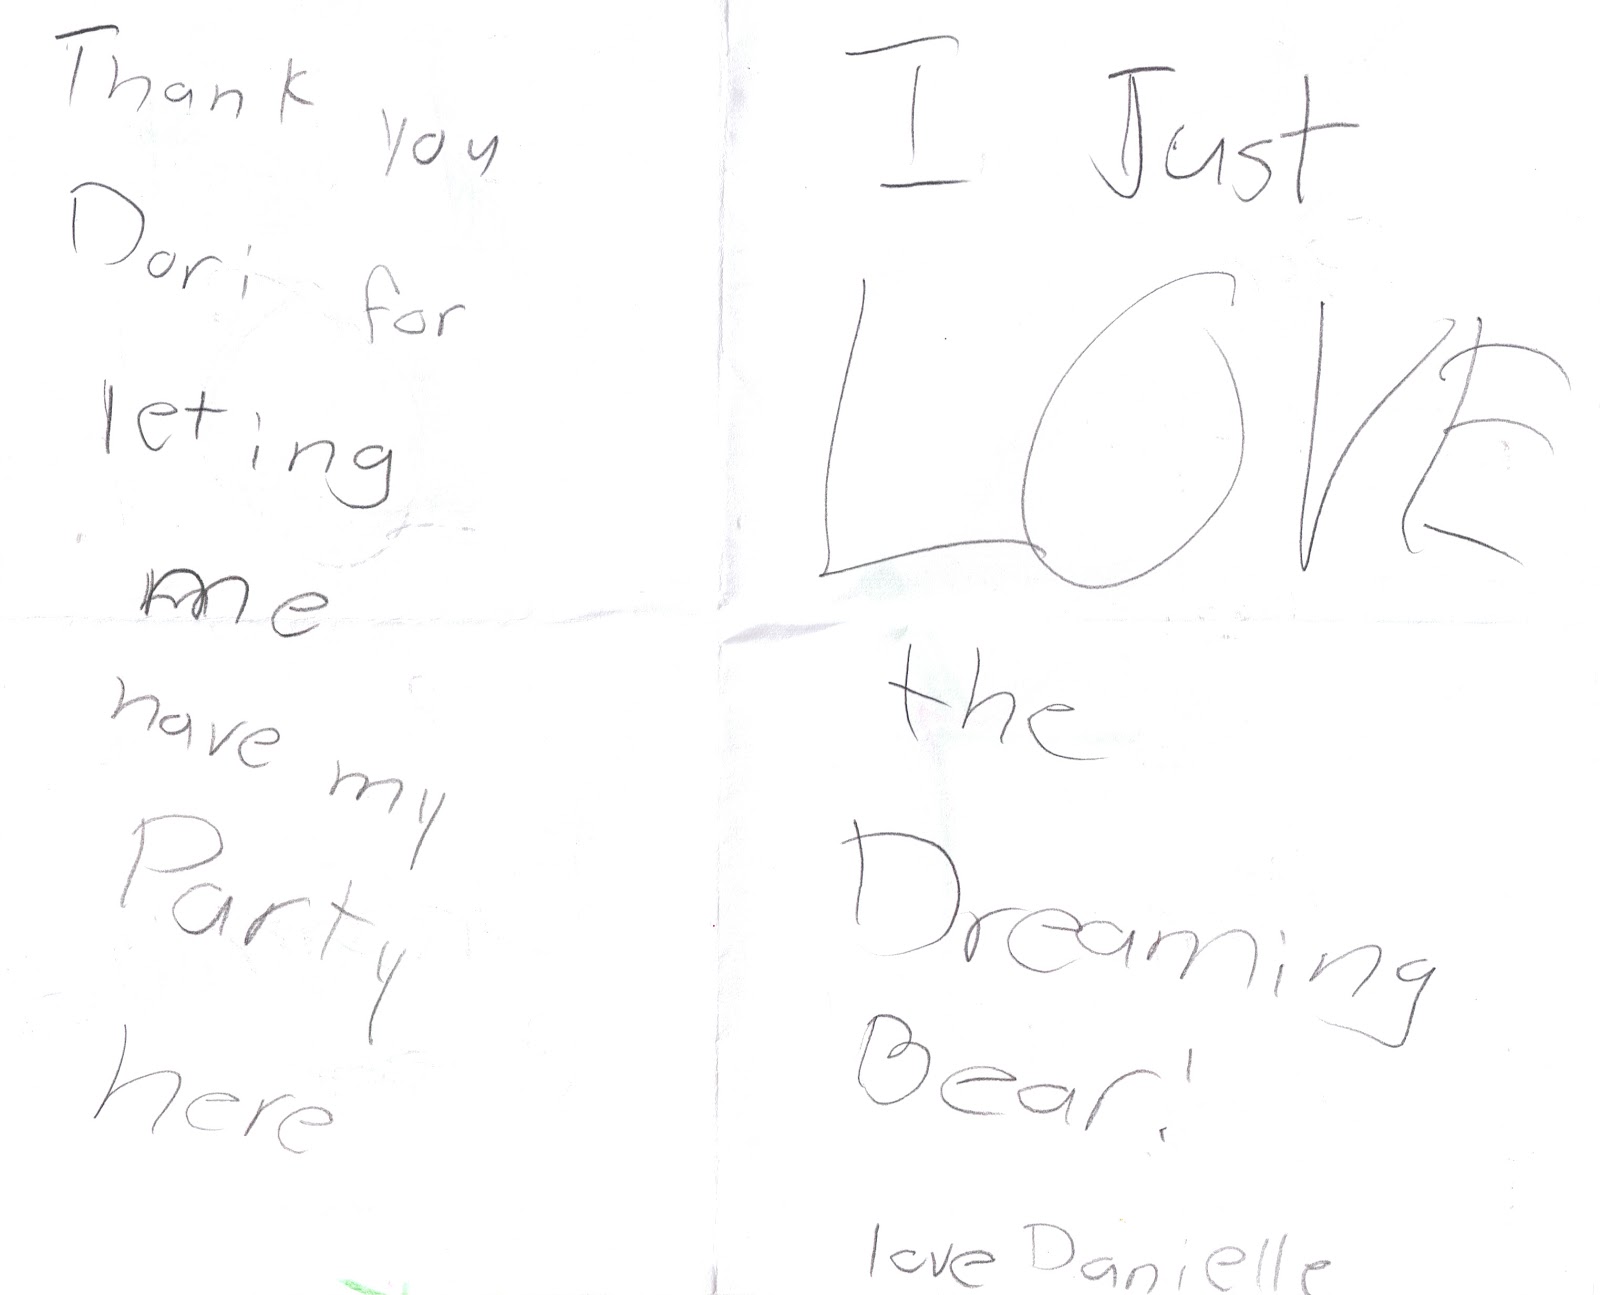 Thank you
Dori for
leting
me
have my
Party
here
I Just
LOVE
the
Dreaming
Bear!
love Danielle